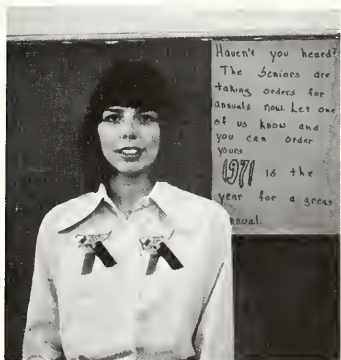 Haven't you heard?
The Seniors are
taking orders for
annuals now. Let one
of us know and
you can order
yours
1971 is the
year for a great
annual.